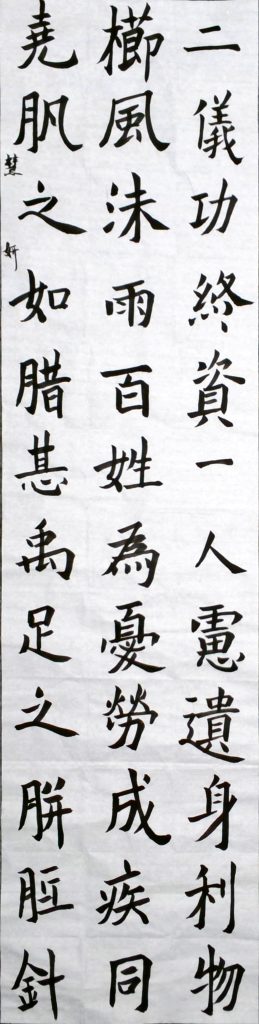 二儀功終資一人慮遺身利物
櫛風沐雨百姓為憂勞成疾同
堯肌之如腊甚禹足之胼胝針
慧妍